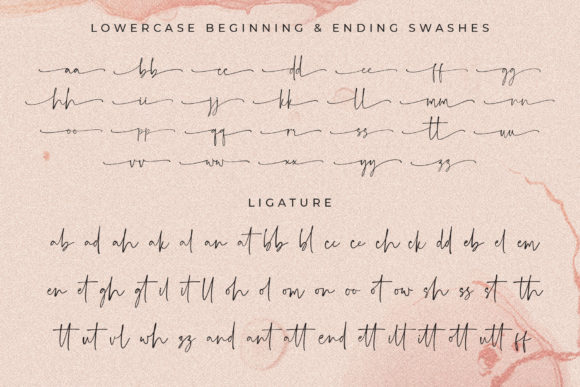 LOWERCASE BEGINNING & ENDING SWASHES
aa bb cc dd ee ff gg
hh ii jj kk ll mm nn
oo pp qq rr ss tt uu
vv ww xx yy zz
LIGATURE
ab ad ah ak al an at bb bl cc ce ch ck dd eb el em
en et gh gt il it ll oh ol om on oo ot ow sh ss st th
tt ut vl wh zz and ant att end ett ill itt ott utt ff